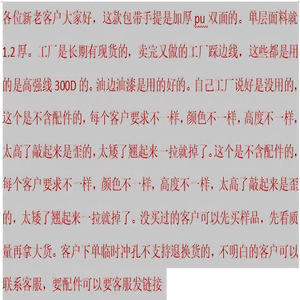 各位新老客户大家好，这款包带手提是加厚pu双面的。单层面料就
1.2厚。工厂是长期有现货的，卖完又做的工厂踩边线，这些都是用
的是高强线300D的。油边油漆是用的好的。自己工厂说好是没用的，
这个是不含配件的，每个客户要求不一样，颜色不一样，高度不一样，
太高了敲起来是歪的，太矮了翘起来一拉就掉了。这个是不含配件的，
每个客户要求不一样，颜色不一样，高度不一样，太高了敲起来是歪
的，太矮了翘起来一拉就掉了。没买过的客户可以先买样品，先看质
量再拿大货。客户下单临时冲孔不支持退换货的，不明白的客户可以
联系客服，要配件可以要客服发链接